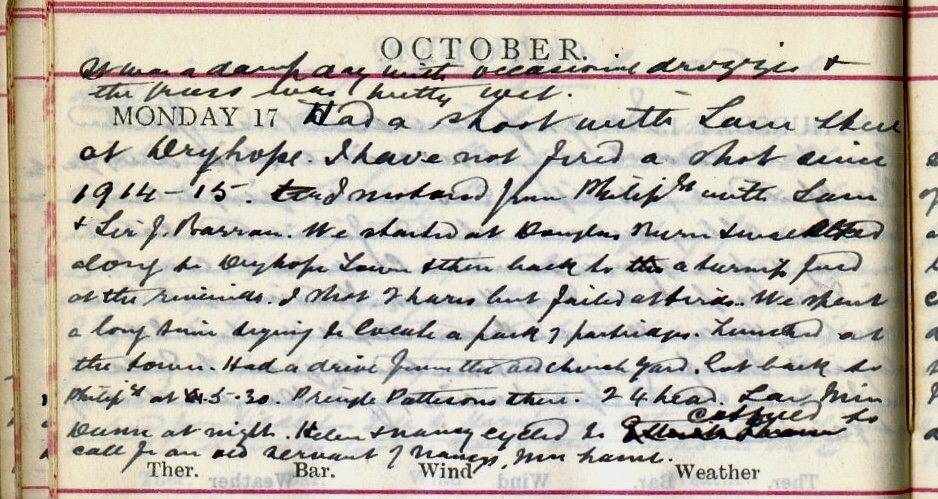 OCTOBER.
It was a damp day with occasional drizzles &
the grass was pretty wet.
MONDAY 17 Had a shoot with Sam then
at Dryhope. I have not fired a shot since
1914-15. I motored from Philip with Sam
& Sir J. Barran. We started at Douglas Burn &
along to Dryhope Tower & then back to a turnip field
at the . I shot 2 hares but failed at birds. We spent
a long time trying to locate a pack of partridges. Lunched at
the tower. Had a drive from the old church yard. Got back to
Philip at 5.30. Pringle Pattisons there. 24 head.
at night. Helen & Nancy cycled to
call for an old servant of Nancy's, Mrs
Ther. Bar. Wind Weather